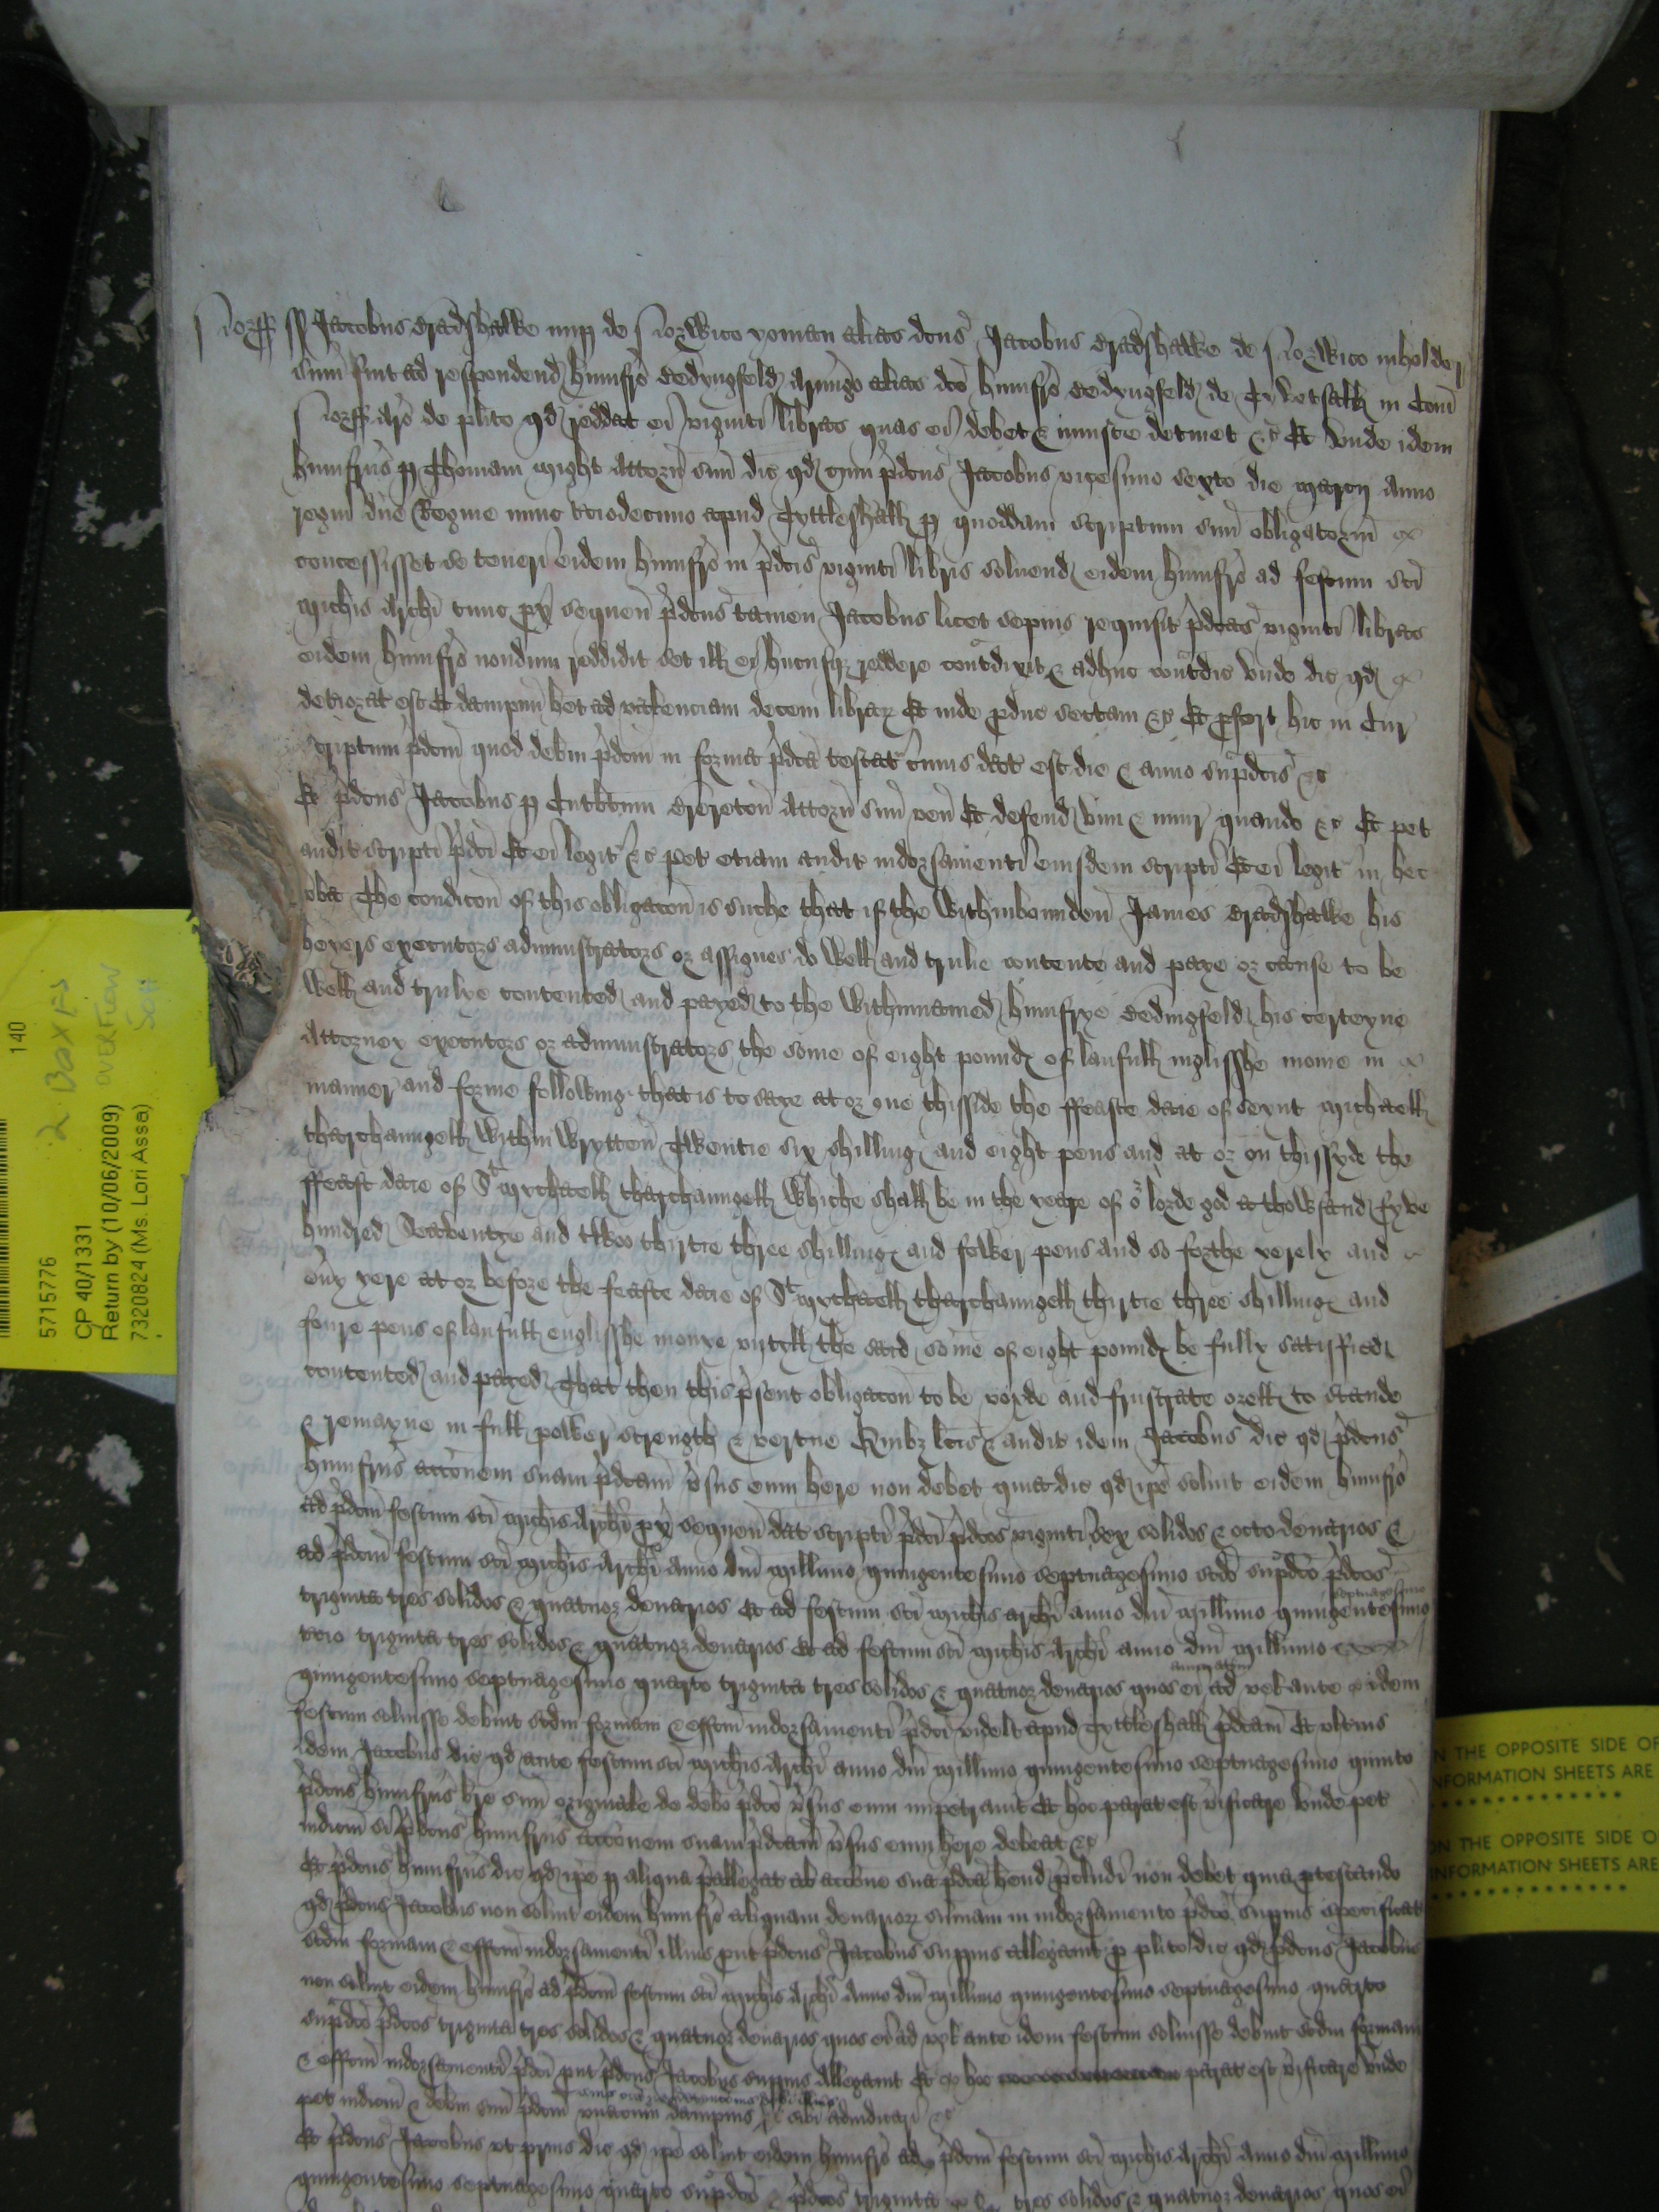 Norff ss Jacobus Bradshawe nup de Norwico yoman alias dcus Jacobus Bradshawe de Norwico inholder
sum fuit ad respondend Humfro Bedyngfeld Armigo alias dco Humfro Bedyngfeld de in Com
Norff Aro de plito qd reddat ei viginti libras quas ei debet & iniuste detinet &c Et unde idem
Humfrus p Thomam might Attorn suu dic qd cum pdcus Jacobus vicesimo sexto die marcij Anno
regni dne Regine nunc tciodecimo apud Tyttleshall p quoddam scriptum suu obligatorm
concessisset se teneri eidem Humfro in pdcis viginti libris solvend eidem Humfro ad festum sci
Michis Archi tunc px sequen pdcus tamen Jacobus licet sepius requisit pdcas viginti libras
eidem Humfro nondum reddidit set ill ei hucusq reddere contdixit & adhuc contdic unde dic qd
detiorat est Et dampnu het ad valenciam decem librar Et inde pduc sectam &c Et pfert hic in Cur
scriptum pdcm quod debm pdcm in forma pdca testat cuius dat est die & anno supdcis &c
Et pdcus Jacobus p Cutbtum Brereton Attorn suu ven Et defend vim & iniur quando &c Et pet
audit scripti pdci Et ei legit &c pet etiam audit indorsamenti eiusdem scripti Et ei legit in hec
vba The condicon of this obligacon is suche that if the withinbounden James Bradshawe his
heyers executors administrators or assignes do well and trulie contente and paye or cause to be
well and trulye contented and payed to the withinnamed Humfrye Bedingfeld his certeyne
Attorney executors or administrators the some of eight pound of laufull inglisshe monie in
manner and forme following that is to saye at or one thisside the ffeaste daie of seynt Michaell
tharchaungell within wrytten Twentie six shilling and eight pens and at or on thissyde the
ffeast daie of St Mychaell tharchaungell whiche shall be in the yeare of or lorde god a thowsand fyve
hundred Seaventye and twoo thirtie three shilling and fower pens and so forthe yerely and
evy yere at or before the feaste daie of St Mychaell tharchaungell thirtie three shilling and
foure pens of laufull englisshe monye vntyll the said some of eight pound be fully satisfied
contented and payed That then this psent obligacon to be voyde and frustrate orells to stande
& remayne in full power strength & vertue Quibz lcis & audit idem Jacobus dic qd pdcus
Humfrus accionem suam pdcam vsus eum here non debet quia dic qd ipe solvit eidem Humfro
ad pdcm festum sci Michis Archi px sequen dat scripti pdci pdcos viginti sex solidos & octo denarios &
ad pdcm festum sci Michis Archi anno dni millimo quingentesimo septuagesimo scdo supdco pdcos
triginta tres solidos & quatuor denarios Et ad festum sci Michis archi anno dni millimo quingentesimo septuagesimo
tcio triginta tres solidos & quatuor denarios Et ad festum sci Michis Archi anno dni millimo
quingentesimo septuagesimo quarto triginta tres solidos & quatuor denarios quos ei ad vel ante idem
festum solvisse debuit scdm formam & effcm indorsamenti pdci videlt apud Tyttleshall pdcam Et ulterius
idem Jacobus dic qd ante festum sci Michis Archi anno dni millimo quingentesimo septuagesimo quinto
pdcus Humfrus bre suu originale de debo pdco vsus eum impetravit Et hoc parat est vificare unde pet
iudicm si pdcus Humfrus accionem suam pdcam vsus eum here debeat &c
Et pdcus Humfrus dic qd ipe p aliqua pallegat ab accione sua pdca hend pcludi non debet quia ptestando
qd pdcus Jacobus non solvit eidem Humfro aliquam denarior summam in indorsamento pdco supius specificat
scdm formam & effcm indorsamenti illius put pdcus Jacobus supius allegavit p plito dic qd pdcus Jacobus
non solvit eidem Humfro ad pdcm festum sci Michis Archi Anno dni millimo quingentesimo septuagesimo quarto
supdco pdcos triginta tres solidos & quatuor denarios quos ei ad vel ante idem festum solvisse debuit scdm formam
& effcm indorsamenti pdci put pdcus Jacobus supius Allegavit Et hoc parat est vificare unde
pet iudicm & debm suu pdcm unacum dampnis sibi adiudicari &c
Et pdcus Jacobus ut prius dic qd ipe solvit eidem Humfro ad pdcm festum sci Michis Archi Anno dni millimo
quingentesimo septuagesimo quarto supdco pdcos triginta tres solidos & quatuor denarios quos ei
140
2 BOXES
OVERFLOW
5715776
CP 40/1331
Return by (10/06/2009)
7320824 (Ms. Lori Assea)
N THE OPPOSITE SIDE OF
NFORMATION SHEETS ARE
ON THE OPPOSITE SIDE O
INFORMATION SHEETS ARE